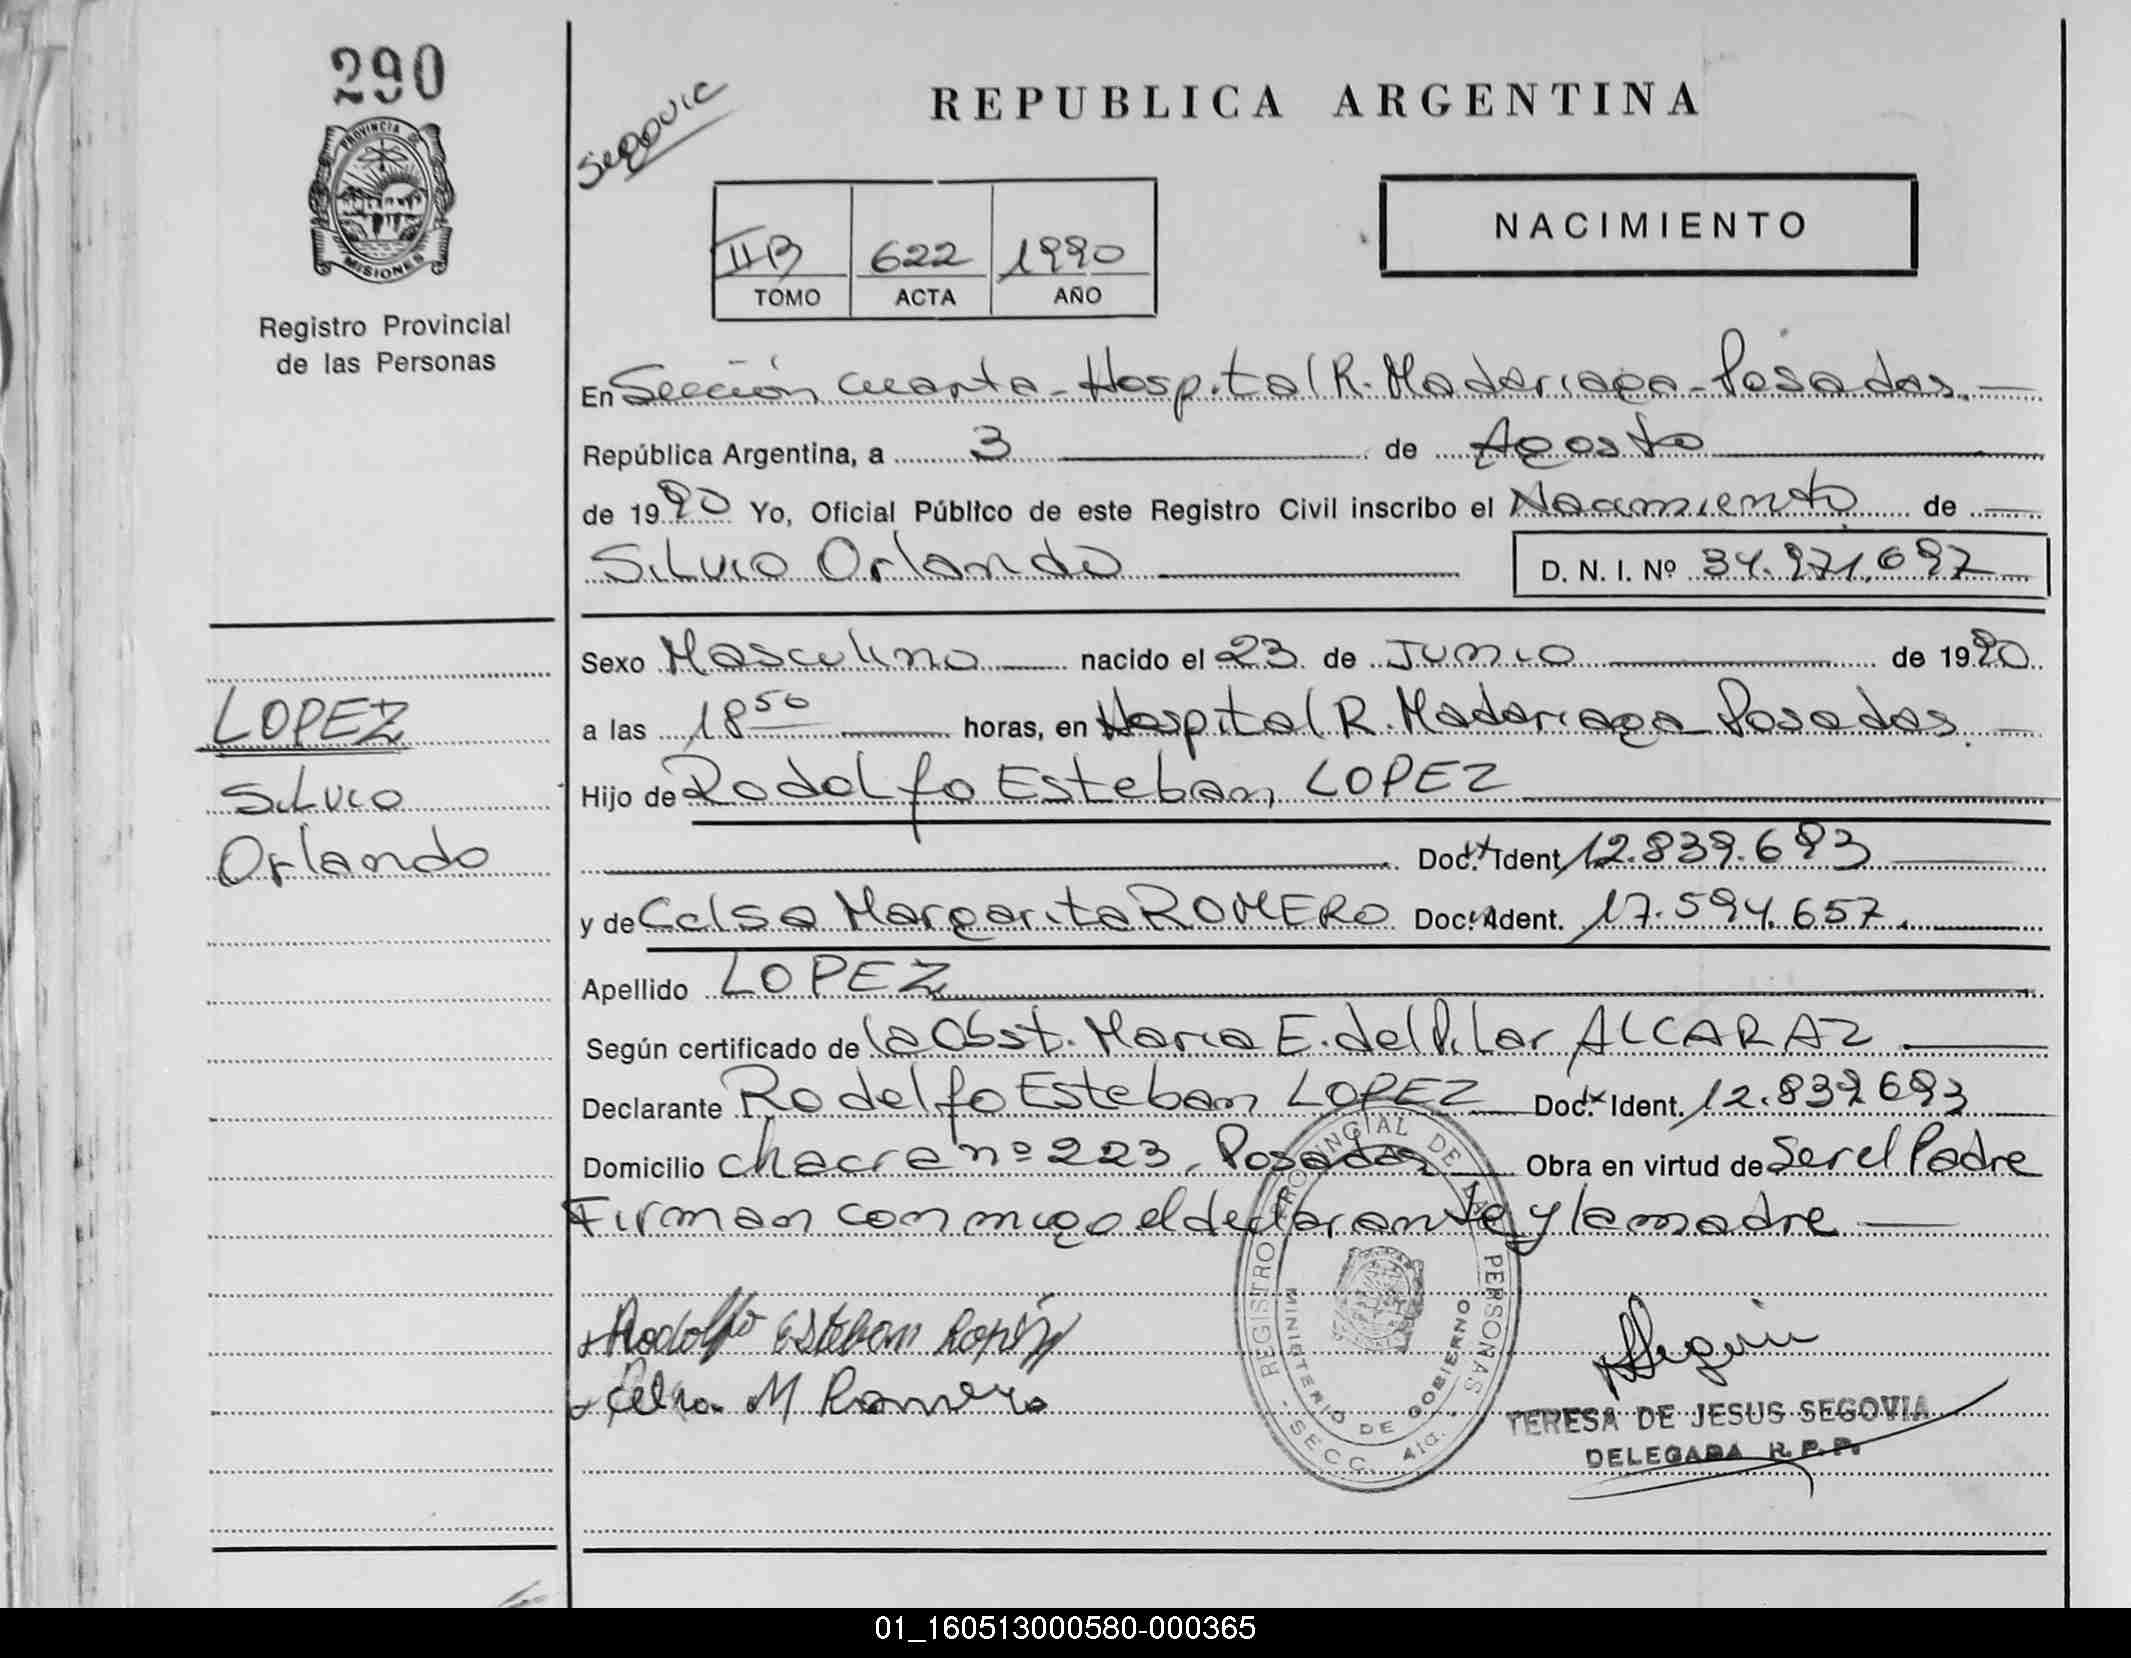 290
PROVINCIA DE
MISIONES
Registro Provincial
de las Personas
LOPEZ
Silvio
Orlando
Segovia
REPUBLICA ARGENTINA
II B 622 1990
TOMO ACTA AÑO
NACIMIENTO
En Sección Cuarta - Hospital R. Madariaga - Posadas.
República Argentina, a 3 de Agosto
de 1990 Yo, Oficial Público de este Registro Civil inscribo el Nacimiento de
Silvio Orlando D. N. I. Nº 34.971.697
Sexo Masculino nacido el 23 de Junio de 1990
a las 18 50 horas, en Hospital R. Madariaga Posadas.
Hijo de Rodolfo Esteban LOPEZ
Doc. Ident. 12.839.693
y de Celsa Margarita ROMERO Doc. Ident. 17.594.657.
Apellido LOPEZ
Según certificado de la Obst. Maria E. del Pilar ALCARAZ
Declarante Rodolfo Esteban LOPEZ Doc. Ident. 12.839693
Domicilio Chacra nº 223, Posadas Obra en virtud de Ser el Padre
Firman conmigo el declarante y la madre
Rodolfo Esteban Lopéz
Celsa M Romero
REGISTRO PROVINCIAL DE LAS PERSONAS
MINISTERIO DE GOBIERNO
SECC. 4ta.
TERESA DE JESUS SEGOVIA
DELEGADA R. P. P.
01_160513000580-000365